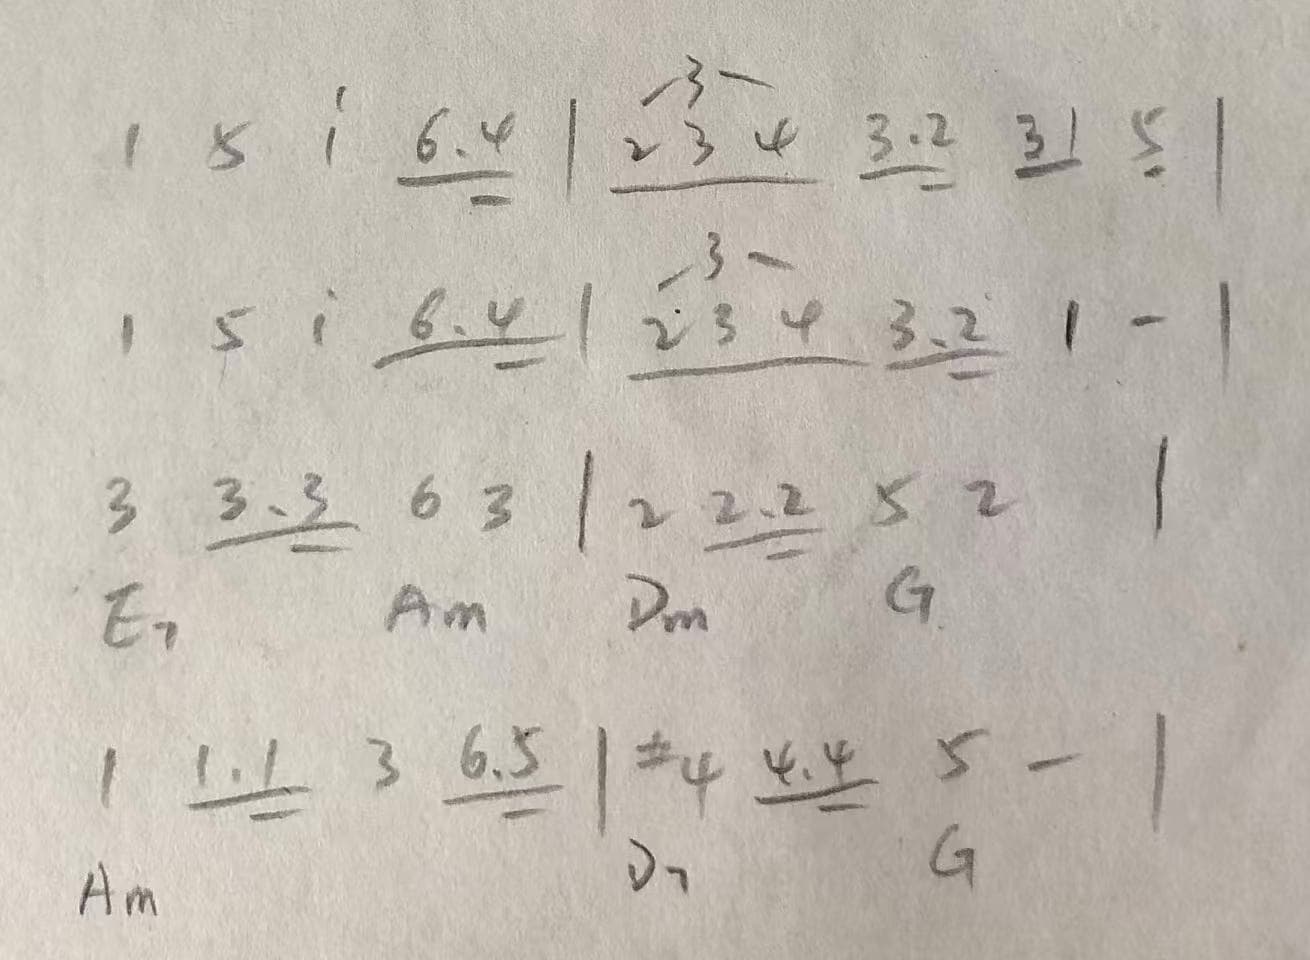 3
1 5 i 6.4 | 2 3 4 3.2 31 5 |
3
1 5 i 6.4 | 2 3 4 3.2 1 - |
3 3.3 6 3 | 2 2.2 5 2 |
E7 Am Dm G
1 1.1 3 6.5 | #4 4.4 5 - |
Am D7 G